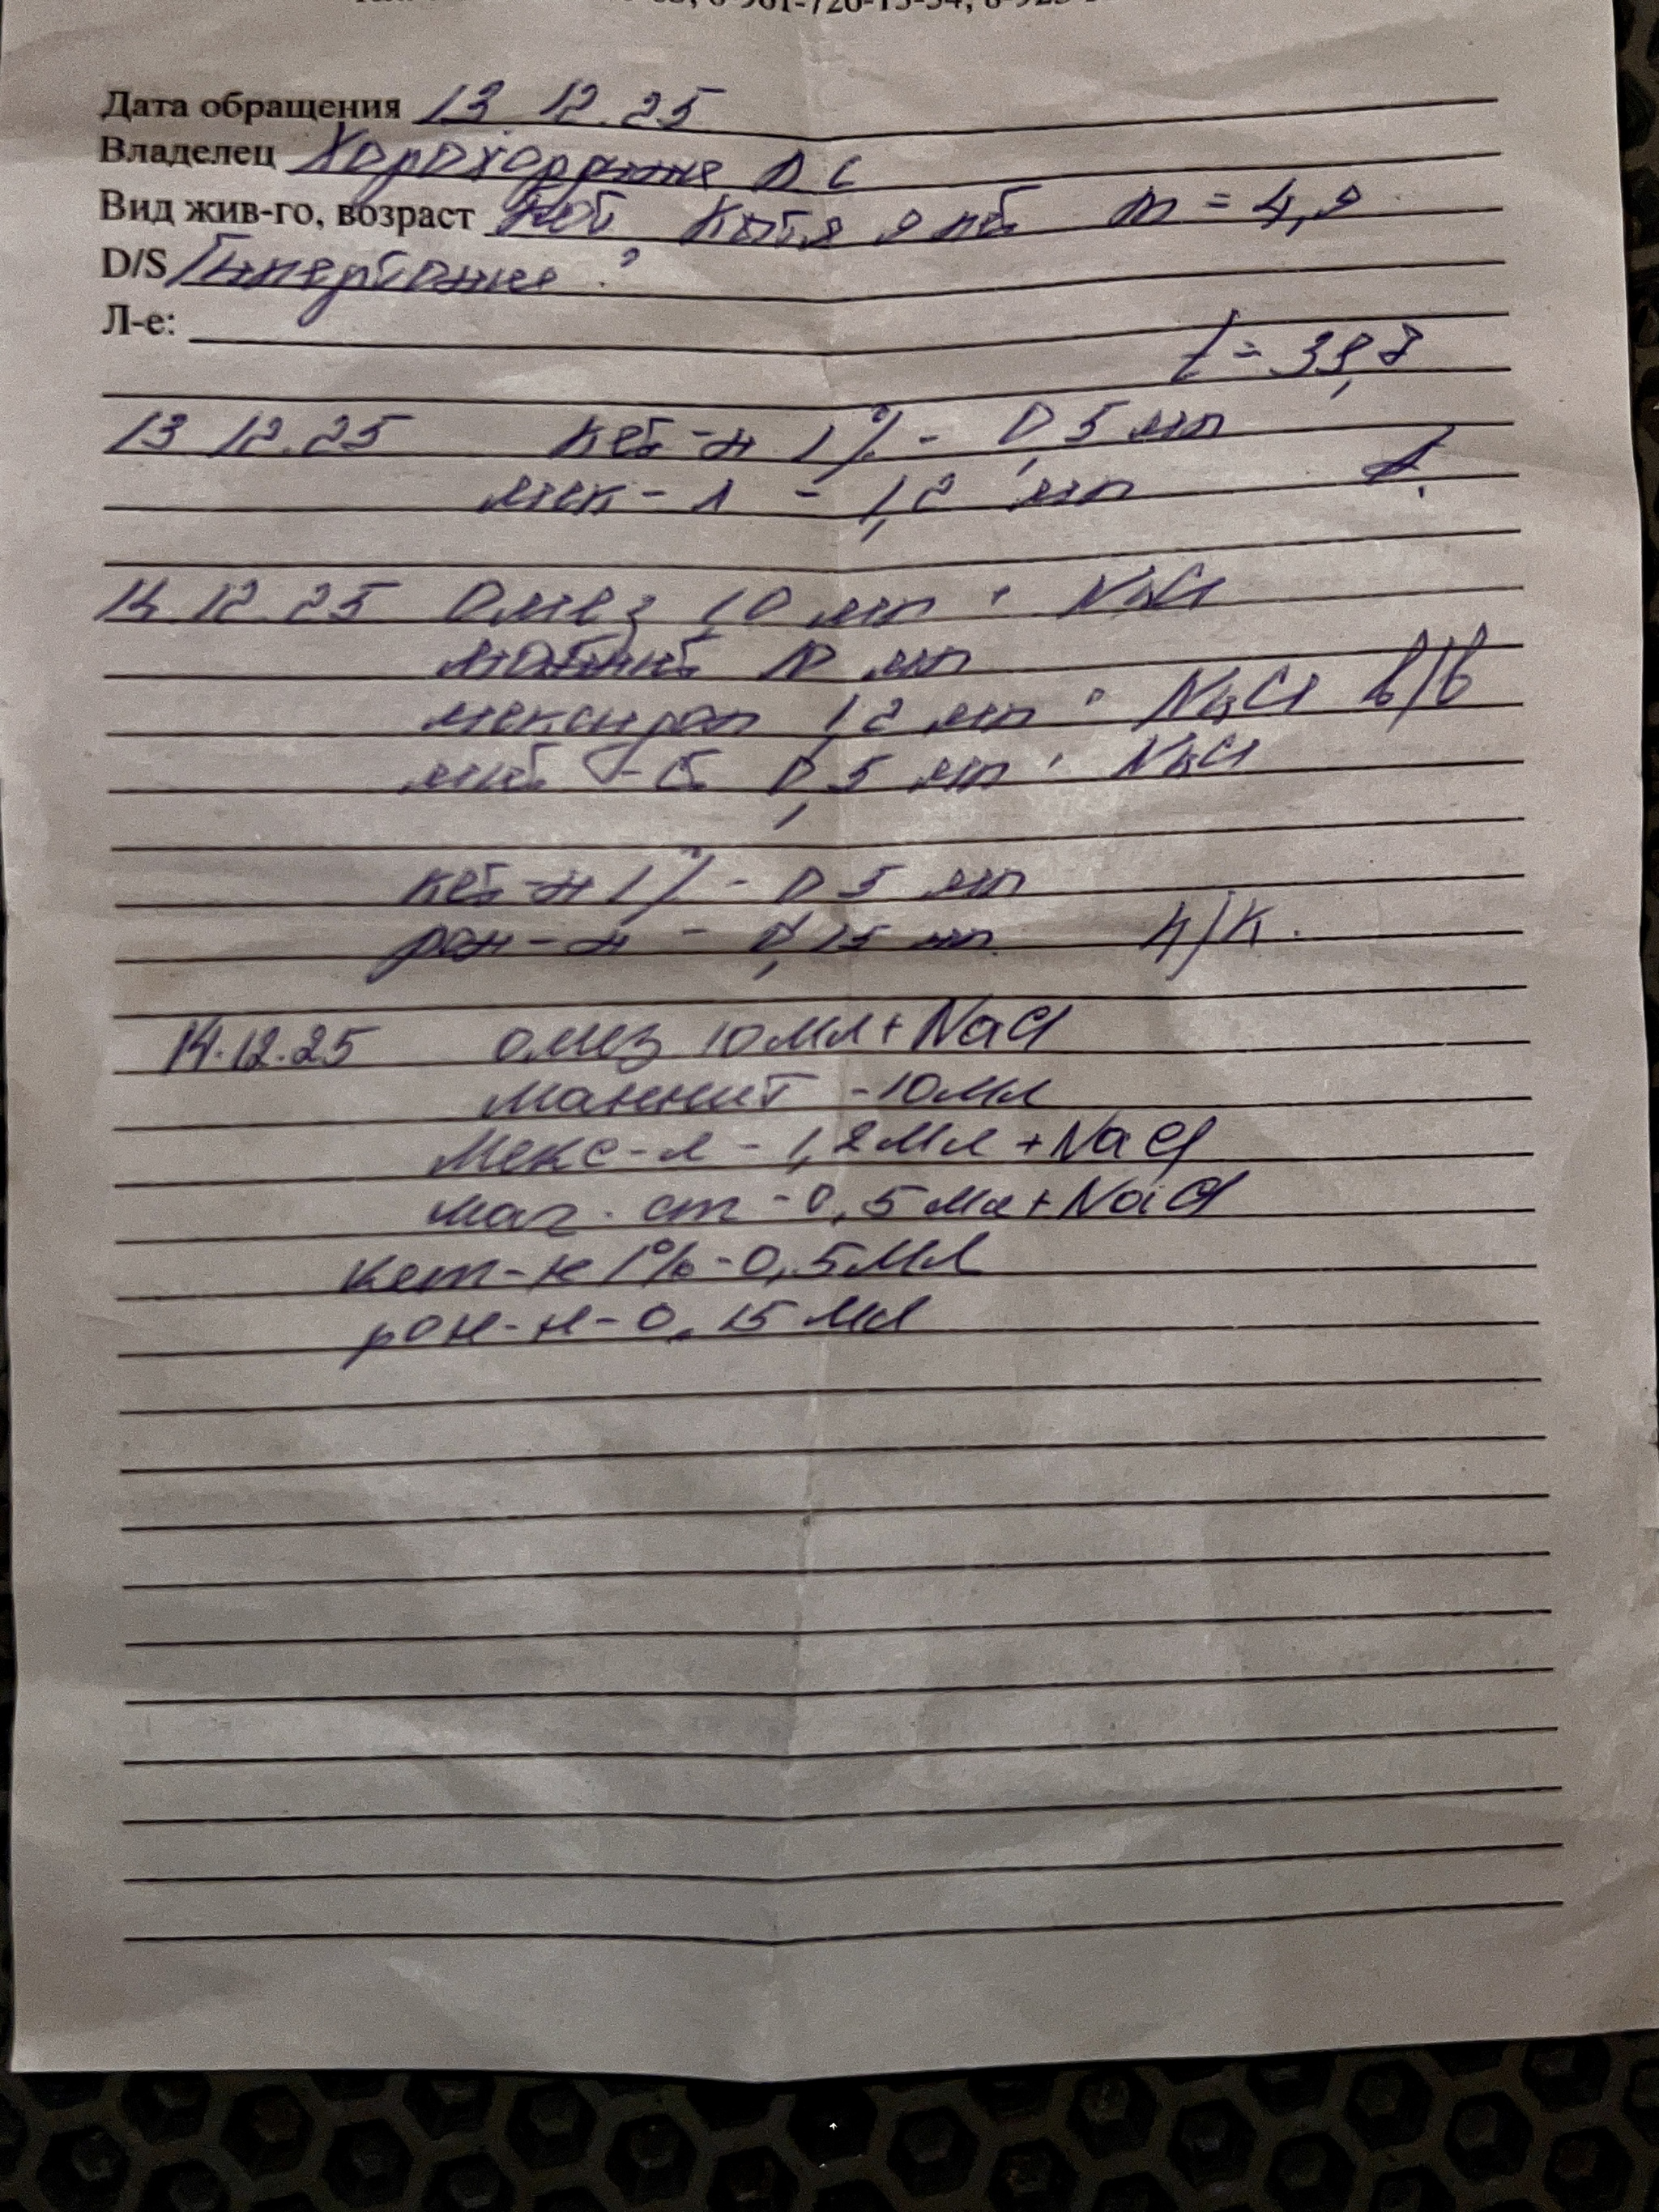 Дата обращения 13 12.25
Владелец
Вид жив-го, возраст кот Котя 9 лет m = 4,9
D/S Гипертония ?
Л-е:
t = 39,7
13 12.25 кет-н 1% - 0,5 мл
мек-л - 1,2 мл
14 12.25 Омез 10 мл + NaCl
маннит 10 мл
мексидол 1,2 мл + NaCl в/в
0,5 мл + NaCl
кет-н 1% - 0,5 мл
рон-н - 0,15 мл п/к.
14.12.25 омез 10 мл + NaCl
Маннит - 10 мл
Мекс-л - 1,2 мл + NaCl
маг. ст - 0,5 мл + NaCl
кет-н 1% - 0,5 мл
рон-н - 0,15 мл